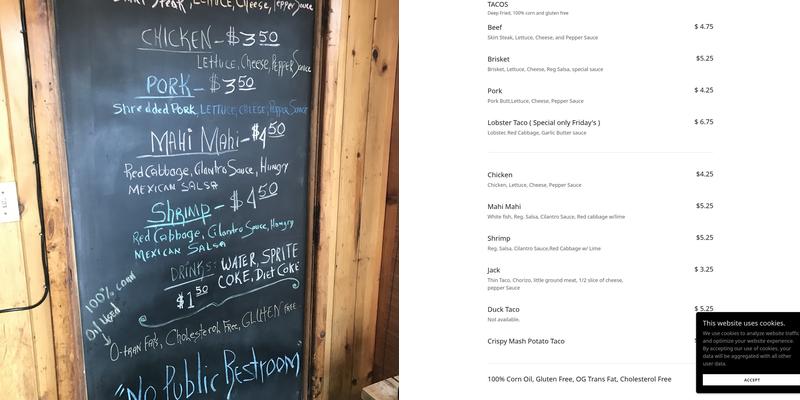 Steak, Lettuce, Cheese, Pepper Sauce
CHICKEN - $3.50
Lettuce, Cheese, Pepper Sauce
PORK - $3.50
Shredded Pork, LETTUCE, CHEESE, Pepper Sauce
MAHi Mahi - $4.50
Red Cabbage, Cilantro Sauce, Hungry
MEXICAN SALSA
Shrimp - $4.50
Red Cabbage, Cilantro Sauce, Hungry
MEXICAN SALSA
DRINKS: WATER, SPRITE
$1.50 COKE, Diet Coke
100% Corn
Oil Used
O-tran Fats, Cholesterol Free, GLUTEN Free
"No Public Restroom"
TACOS
Deep Fried, 100% corn and gluten free
Beef $ 4.75
Skin Steak, Lettuce, Cheese, and Pepper Sauce
Brisket $5.25
Brisket, Lettuce, Cheese, Reg Salsa, special sauce
Pork $ 4.25
Pork Butt,Lettuce, Cheese, Pepper Sauce
Lobster Taco ( Special only Friday's ) $ 6.75
Lobster, Red Cabbage, Garlic Butter sauce
Chicken $4.25
Chicken, Lettuce, Cheese, Pepper Sauce
Mahi Mahi $5.25
White fish, Reg. Salsa, Cilantro Sauce, Red cabbage w/lime
Shrimp $5.25
Reg. Salsa, Cilantro Sauce,Red Cabbage w/ Lime
Jack $ 3.25
Thin Taco, Chorizo, little ground meat, 1/2 slice of cheese,
pepper Sauce
Duck Taco $ 5.25
Not available.
Crispy Mash Potato Taco
100% Corn Oil, Gluten Free, OG Trans Fat, Cholesterol Free
This website uses cookies.
We use cookies to analyze website traffic
and optimize your website experience.
By accepting our use of cookies, your
data will be aggregated with all other
user data.
ACCEPT